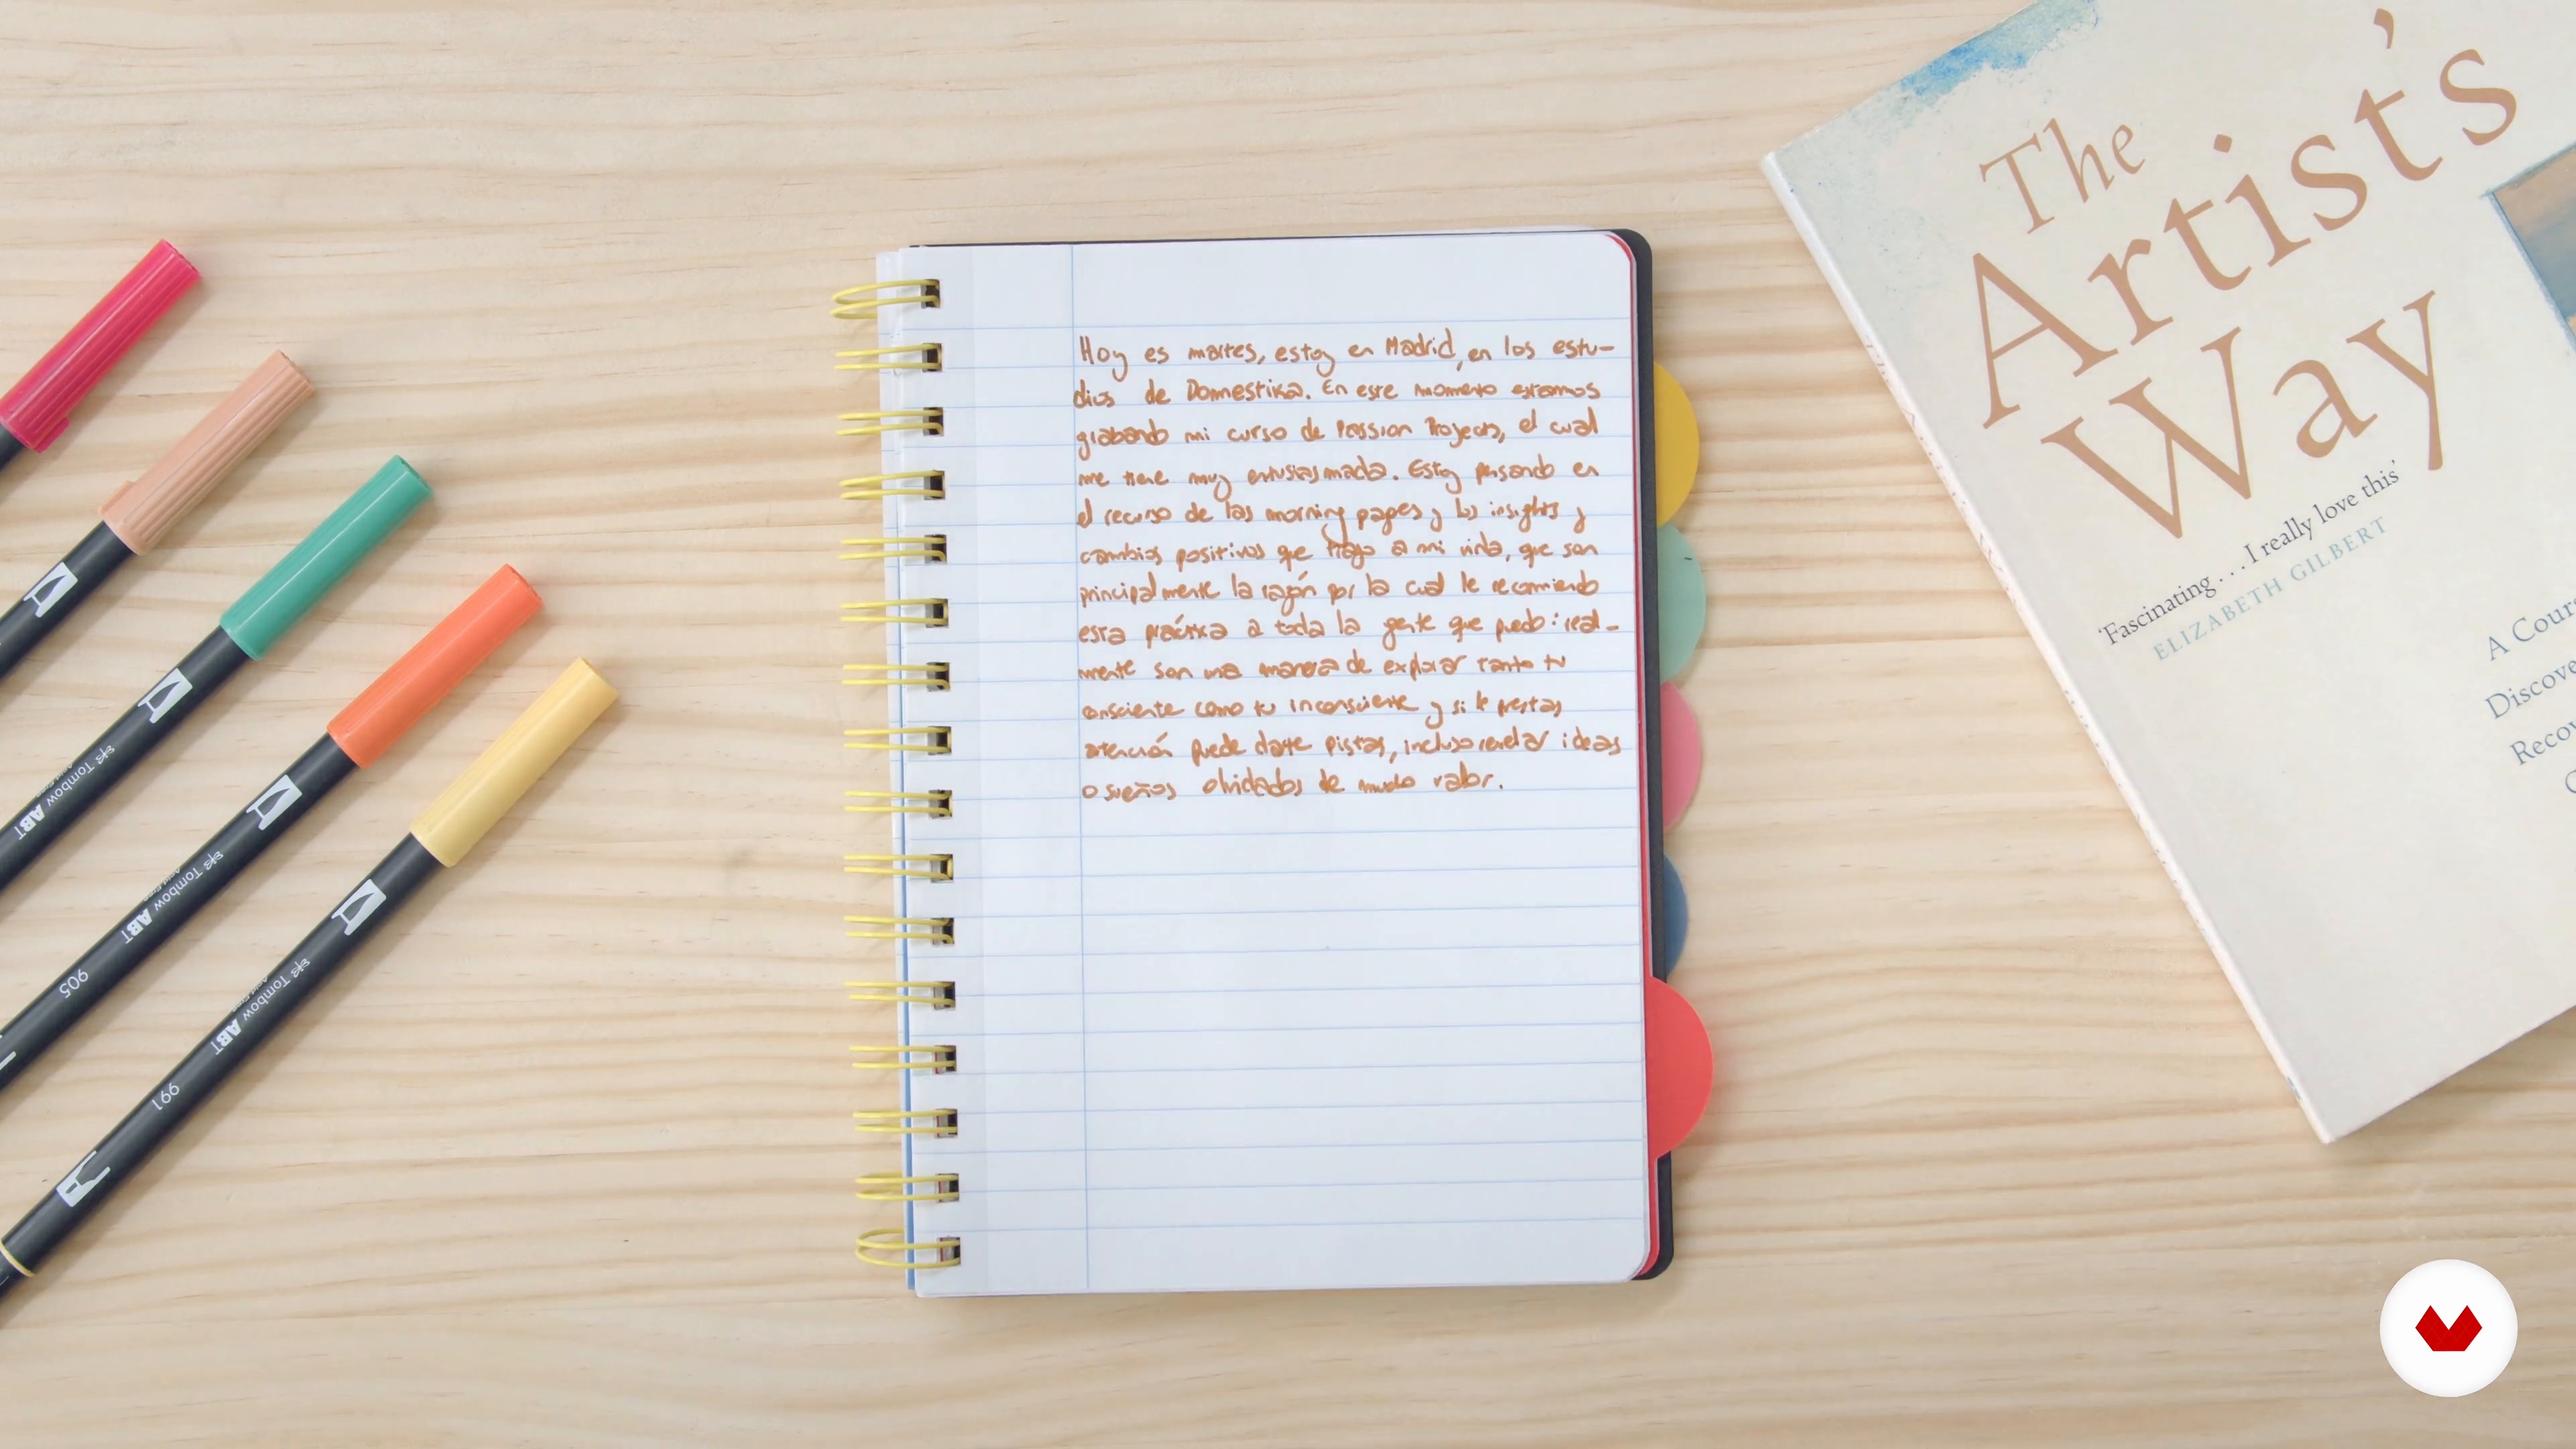 Hoy es martes, estoy en Madrid, en los estu-
dios de Domestika. En este momento estamos
grabando mi curso de Passion Projects, el cual
me tiene muy entusiasmada. Estoy pensando en
el recurso de las morning pages y los insights y
cambios positivos que trajo a mi vida, que son
principalmente la razón por la cual le recomiendo
esta práctica a toda la gente que puedo: real-
mente son una manera de explorar tanto tu
consciente como tu inconsciente y si le prestas
atención puede darte pistas, incluso revelar ideas
o sueños olvidados de mucho valor.
The
Artist's
Way
'Fascinating . . . I really love this'
ELIZABETH GILBERT
A Cour
Discove
Reco
Tombow ABT
Tombow ABT
905
Tombow ABT
991